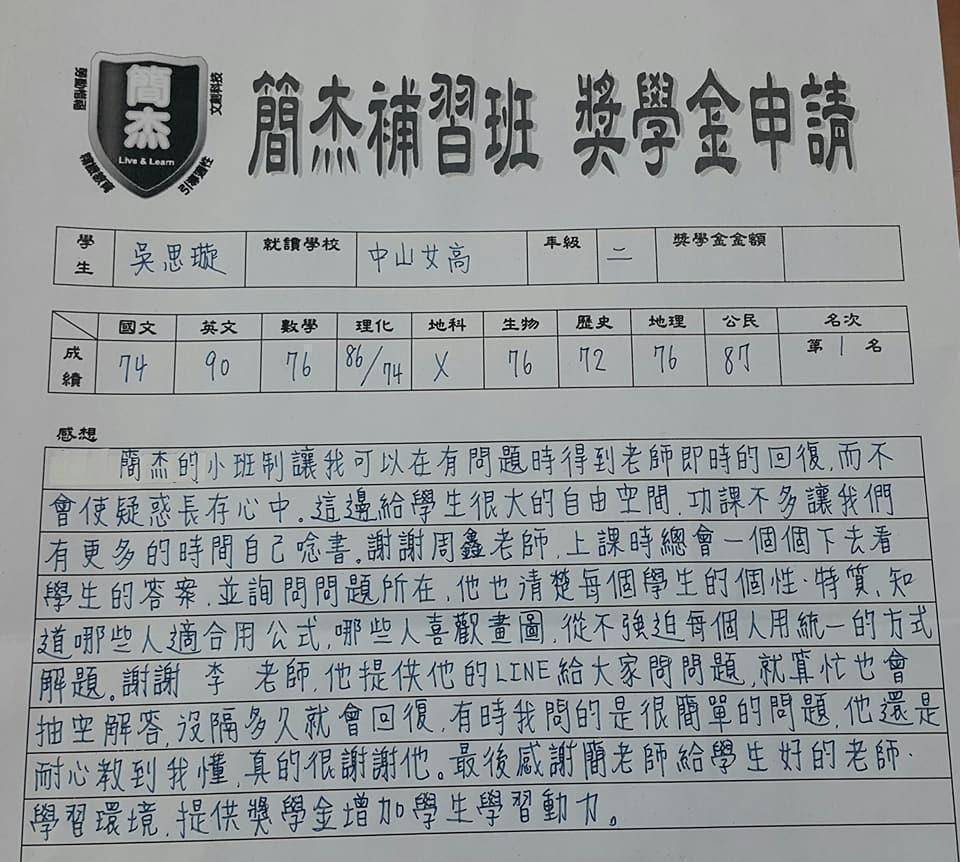 簡杰
Live & Learn
文創科技
引導適性
簡杰補習班 獎學金申請
學生 吳思璇 就讀學校 中山女高 年級 二 獎學金金額
國文 英文 數學 理化 地科 生物 歷史 地理 公民 名次
成績 74 90 76 86/74 X 76 72 76 87 第 1 名
感想
簡杰的小班制讓我可以在有問題時得到老師即時的回復,而不
會使疑惑長存心中。這邊給學生很大的自由空間,功課不多讓我們
有更多的時間自己唸書。謝謝周鑫老師,上課時總會一個個下去看
學生的答案,並詢問問題所在,他也清楚每個學生的個性·特質,知
道哪些人適合用公式,哪些人喜歡畫圖,從不強迫每個人用統一的方式
解題。謝謝 李 老師,他提供他的LINE給大家問問題,就算忙也會
抽空解答,沒隔多久就會回復,有時我問的是很簡單的問題,他還是
耐心教到我懂,真的很謝謝他。最後感謝簡老師給學生好的老師·
學習環境,提供獎學金增加學生學習動力。